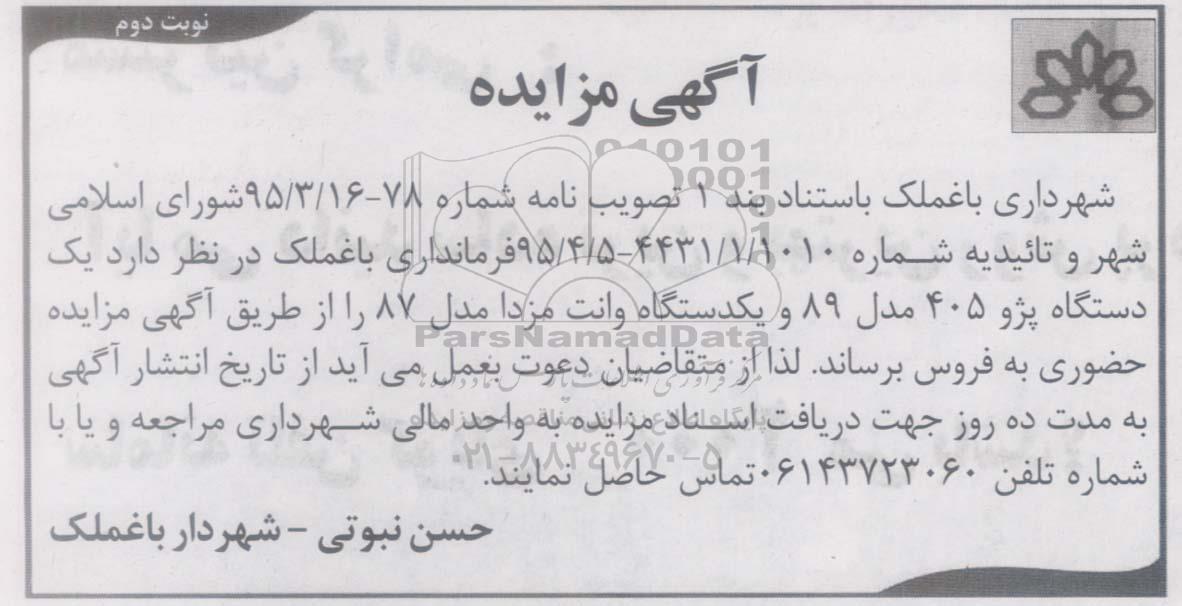 نوبت دوم
آگهی مزایده
شهرداری باغملک باستناد بند ۱ تصویب نامه شماره ۷۸-۹۵/۳/۱۶شورای اسلامی
شهر و تائیدیه شماره ۴۴۳۱/۱/۱۰۱-۹۵/۴/۵فرمانداری باغملک در نظر دارد یک
دستگاه پژو ۴۰۵ مدل ۸۹ و یکدستگاه وانت مزدا مدل ۸۷ را از طریق آگهی مزایده
حضوری به فروس برساند. لذا از متقاضیان دعوت بعمل می آید از تاریخ انتشار آگهی
به مدت ده روز جهت دریافت اسناد مزایده به واحد مالی شهرداری مراجعه و یا با
شماره تلفن ۰۶۱۴۳۷۲۳۰۶۰تماس حاصل نمایند.
حسن نبوتی - شهردار باغملک
ParsNamadData
۰۲۱-۸۸۳۴۹۶۷۰-۵